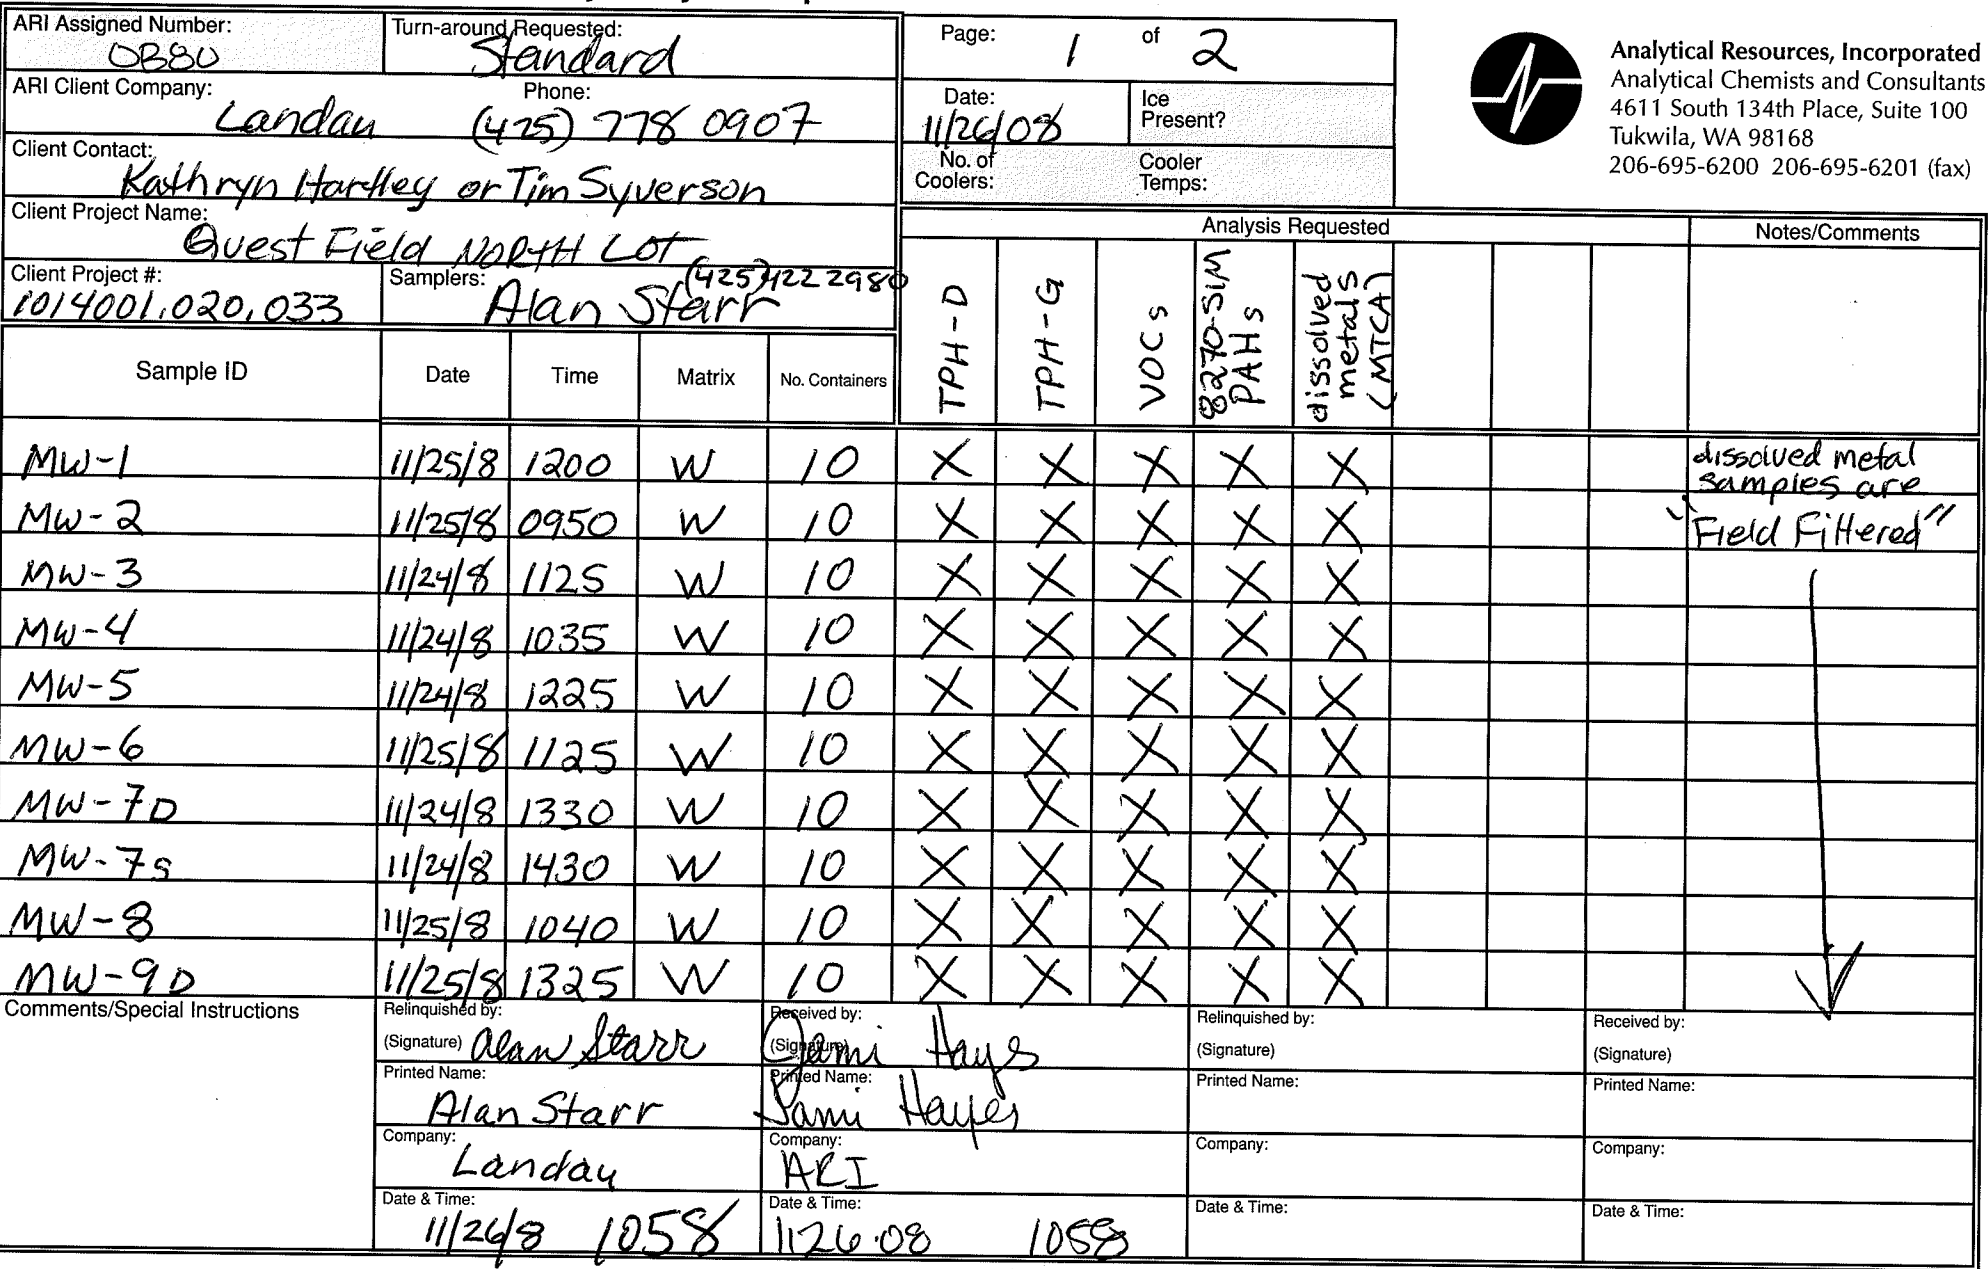 ARI Assigned Number: OB80 Turn-around Requested: Standard
ARI Client Company: Landau Phone: (425) 778 0907
Client Contact: Kathryn Hartley or Tim Syverson
Client Project Name: Quest Field NORTH LOT
Client Project #: 1014001.020.033 Samplers: Alan Starr (425) 422 2980
Page: 1 of 2
Date: 11/26/08 Ice Present?
No. of Coolers: Cooler Temps:
Analytical Resources, Incorporated
Analytical Chemists and Consultants
4611 South 134th Place, Suite 100
Tukwila, WA 98168
206-695-6200 206-695-6201 (fax)
Analysis Requested Notes/Comments
Sample ID Date Time Matrix No. Containers TPH-D TPH-G VOCs 8270-SIM PAHs dissolved metals (MTCA)
MW-1 11/25/8 1200 W 10 X X X X X dissolved metal samples are
MW-2 11/25/8 0950 W 10 X X X X X "Field Filtered"
MW-3 11/24/8 1125 W 10 X X X X X
MW-4 11/24/8 1035 W 10 X X X X X
MW-5 11/24/8 1225 W 10 X X X X X
MW-6 11/25/8 1125 W 10 X X X X X
MW-7D 11/24/8 1330 W 10 X X X X X
MW-7S 11/24/8 1430 W 10 X X X X X
MW-8 11/25/8 1040 W 10 X X X X X
MW-9D 11/25/8 1325 W 10 X X X X X
Comments/Special Instructions
Relinquished by: (Signature) Alan Starr Received by: (Signature) Jami Hays Relinquished by: (Signature) Received by: (Signature)
Printed Name: Alan Starr Printed Name: Jami Hayes Printed Name: Printed Name:
Company: Landau Company: ARI Company: Company:
Date & Time: 11/26/8 1058 Date & Time: 1126.08 1058 Date & Time: Date & Time: